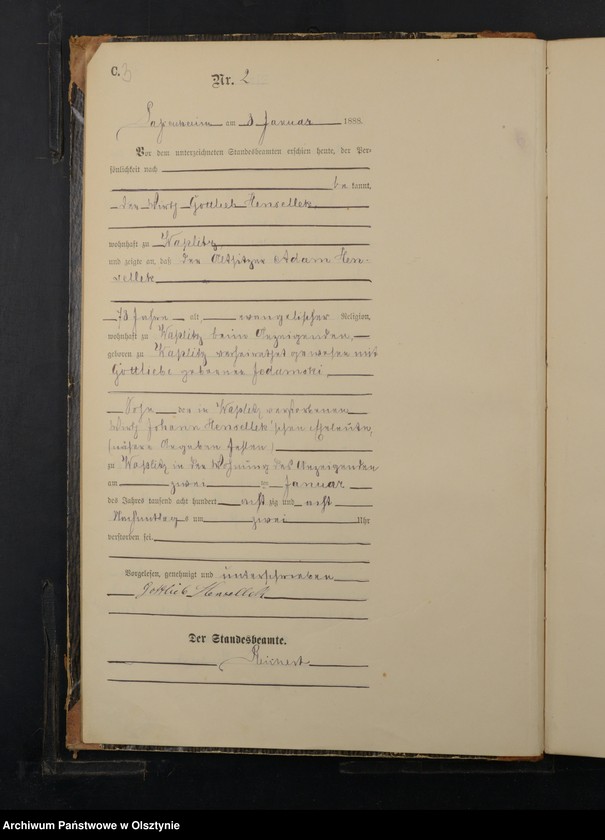 C.
Nr. 2
am 3 Januar 1888.
Vor dem unterzeichneten Standesbeamten erschien heute, der Per-
sönlichkeit nach
be kannt,
der Wirth Gottlieb Hensellek
wohnhaft zu Waplitz
und zeigte an, daß der Altsitzer Adam Hen-
sellek
78 Jahre alt, evangelischer Religion,
wohnhaft zu Waplitz beim Anzeigenden,
geboren zu Waplitz verheirathet gewesen mit
Gottliebe geborenen
Sohn der in Waplitz verstorbenen
Wirth Johann Hensellek'schen Eheleute,
(nähere Angaben fehlen)
zu Waplitz in der Wohnung des Anzeigenden
am zwei ten Januar
des Jahres tausend acht hundert acht zig und acht
Nachmittags um zwei Uhr
verstorben sei.
Vorgelesen, genehmigt und unterschrieben
Gottlieb Hensellek
Der Standesbeamte.
Reichert
Archiwum Państwowe w Olsztynie